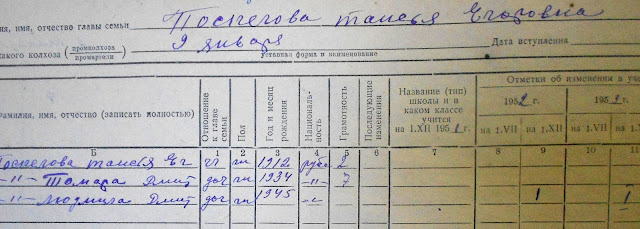 лия, имя, отчество главы семьи Поспелова Таисья Егоровна
какого колхоза (промколхоза промартели) 9 января Дата вступления
Уставная форма и наименование
Фамилия, имя, отчество (записать полностью) Отношение к главе семьи Пол Год и месяц рождения Националь-ность Грамотность Последующие изменения Название (тип) школы и в каком классе учится на 1.XII 195 г. Отметки об изменении в уч
1952 г. 1953 г.
на 1.VII на 1.XII на 1.VII на 1.
Б 1 2 3 4 5 6 7 8 9 10 11
Поспелова Таисья Ег гл жн 1912 русс 2
-"- Тамара Дмит доч жн 1934 -"- 7
-"- Людмила Дмит доч жн 1945 -"- 1 1